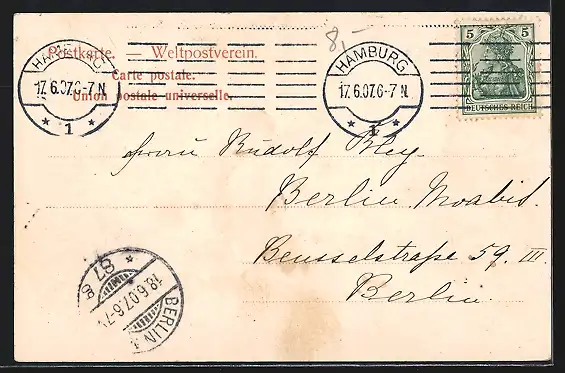 8,-
Postkarte. Weltpostverein.
Carte postale.
Union postale universelle.
HAMBURG
17.6.07.6-7N
* 1 *
HAMBURG
17.6.07.6-7N
* *
5 5
DEUTSCHES REICH
Herrn Rudolf Kley
Berlin Moabit.
Beusselstraße 59. III.
Berlin.
BERLIN
18.6.07.6-7
87